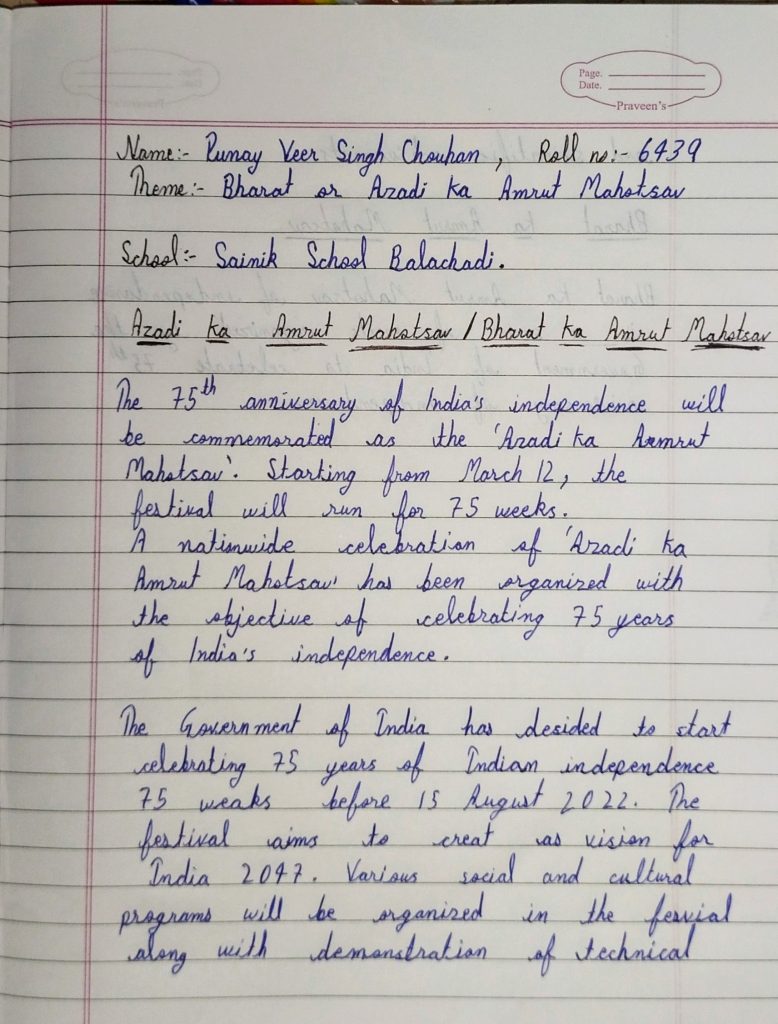 Page.
Date.
Praveen's
Name:- Punay Veer Singh Chouhan, Roll no:- 6439
Theme:- Bharat or Azadi Ka Amrut Mahotsav
School:- Sainik School Balachadi.
Azadi Ka Amrut Mahotsav / Bharat Ka Amrut Mahotsav
The 75th anniversary of India's independence will
be commemorated as the 'Azadi Ka Ammrut
Mahotsav'. Starting from March 12, the
festival will run for 75 weeks.
A nationwide celebration of 'Azadi Ka
Amrut Mahotsav' has been organized with
the objective of celebrating 75 years
of India's independence.
The Government of India has desided to start
celebrating 75 years of Indian independence
75 weaks before 15 August 2022. The
festival aims to creat as vision for
India 2047. Various social and cultural
programs will be organized in the fesvial
along with demonstration of technical